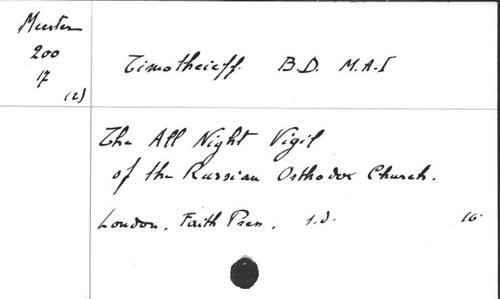 Meester
200
17
(2)
Timotheieff. B.D. M.A.I
The All Night Vigil
of the Russian Orthodox Church.
London, Faith Press, s.d. 16.